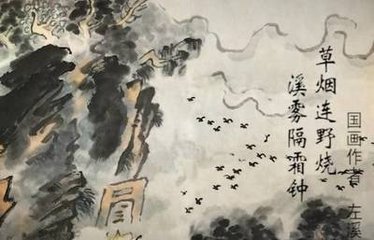 草烟连野烧
溪雾隔霜钟
国画作者 左溪
圆